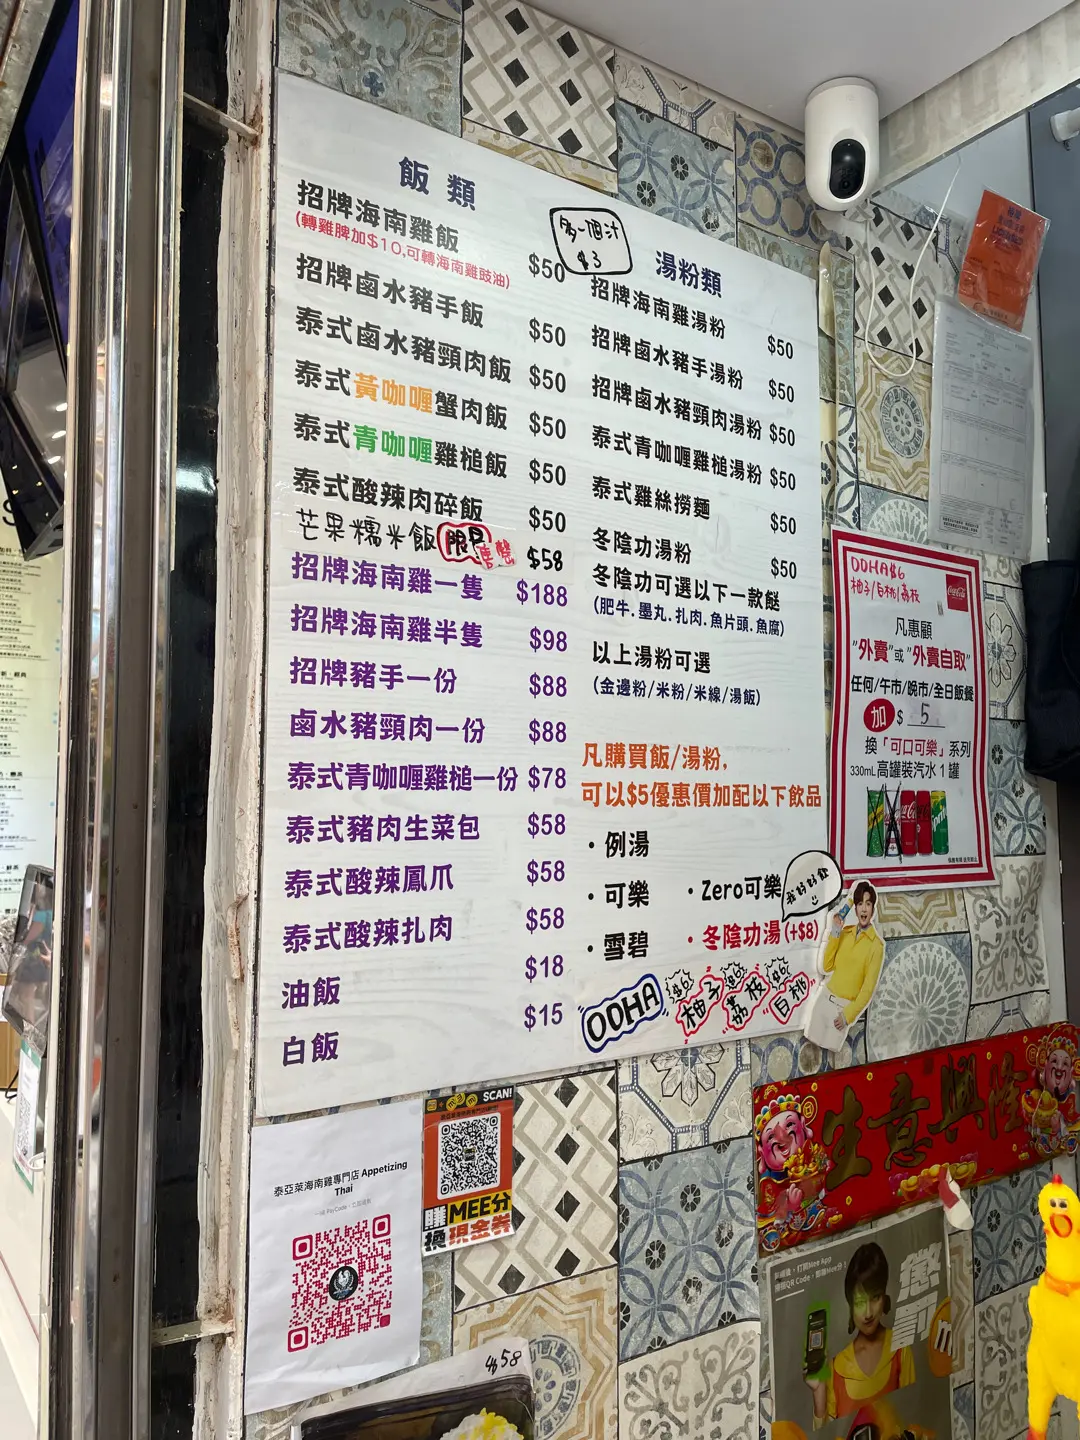 飯類
招牌海南雞飯 $50
(轉雞脾加$10,可轉海南雞豉油)
招牌鹵水豬手飯 $50
泰式鹵水豬頸肉飯 $50
泰式黃咖喱蟹肉飯 $50
泰式青咖喱雞槌飯 $50
泰式酸辣肉碎飯 $50
芒果糯米飯 限量售完 $58
招牌海南雞一隻 $188
招牌海南雞半隻 $98
招牌豬手一份 $88
鹵水豬頸肉一份 $88
泰式青咖喱雞槌一份 $78
泰式豬肉生菜包 $58
泰式酸辣鳳爪 $58
泰式酸辣扎肉 $58
油飯 $18
白飯 $15
多一個汁
$3
湯粉類
招牌海南雞湯粉 $50
招牌鹵水豬手湯粉 $50
招牌鹵水豬頸肉湯粉 $50
泰式青咖喱雞槌湯粉 $50
泰式雞絲撈麵 $50
冬陰功湯粉 $50
冬陰功可選以下一款餸
(肥牛.墨丸.扎肉.魚片頭.魚腐)
以上湯粉可選
(金邊粉/米粉/米線/湯飯)
凡購買飯/湯粉,
可以$5優惠價加配以下飲品
·例湯
·可樂 ·Zero可樂
·雪碧 ·冬陰功湯(+$8)
我好好飲
OOHA $6 柚子 $6 荔枝 $6 白桃
OOHA$6
柚子/白桃/荔枝
Coca-Cola
凡惠顧
"外賣"或"外賣自取"
任何/午市/晚市/全日飯餐
加 $ 5
換「可口可樂」系列
330mL高罐裝汽水1罐
生意興隆
泰亞萊海南雞專門店 Appetizing
Thai
SCAN!
賺MEE分
換現金券
$58
懲罰